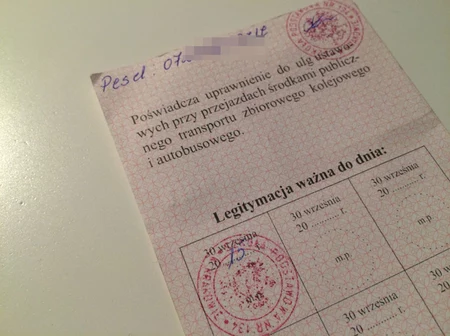 Pesel: 07
Poświadcza uprawnienie do ulg ustawo-
wych przy przejazdach środkami publicz-
nego transportu zbiorowego kolejowego
i autobusowego.
Legitymacja ważna do dnia:
30 września 30 września 30 września
20 15 20 ........... r. 20 ........... r.
m.p. m.p.
30 września 30 września
20 ........... r.